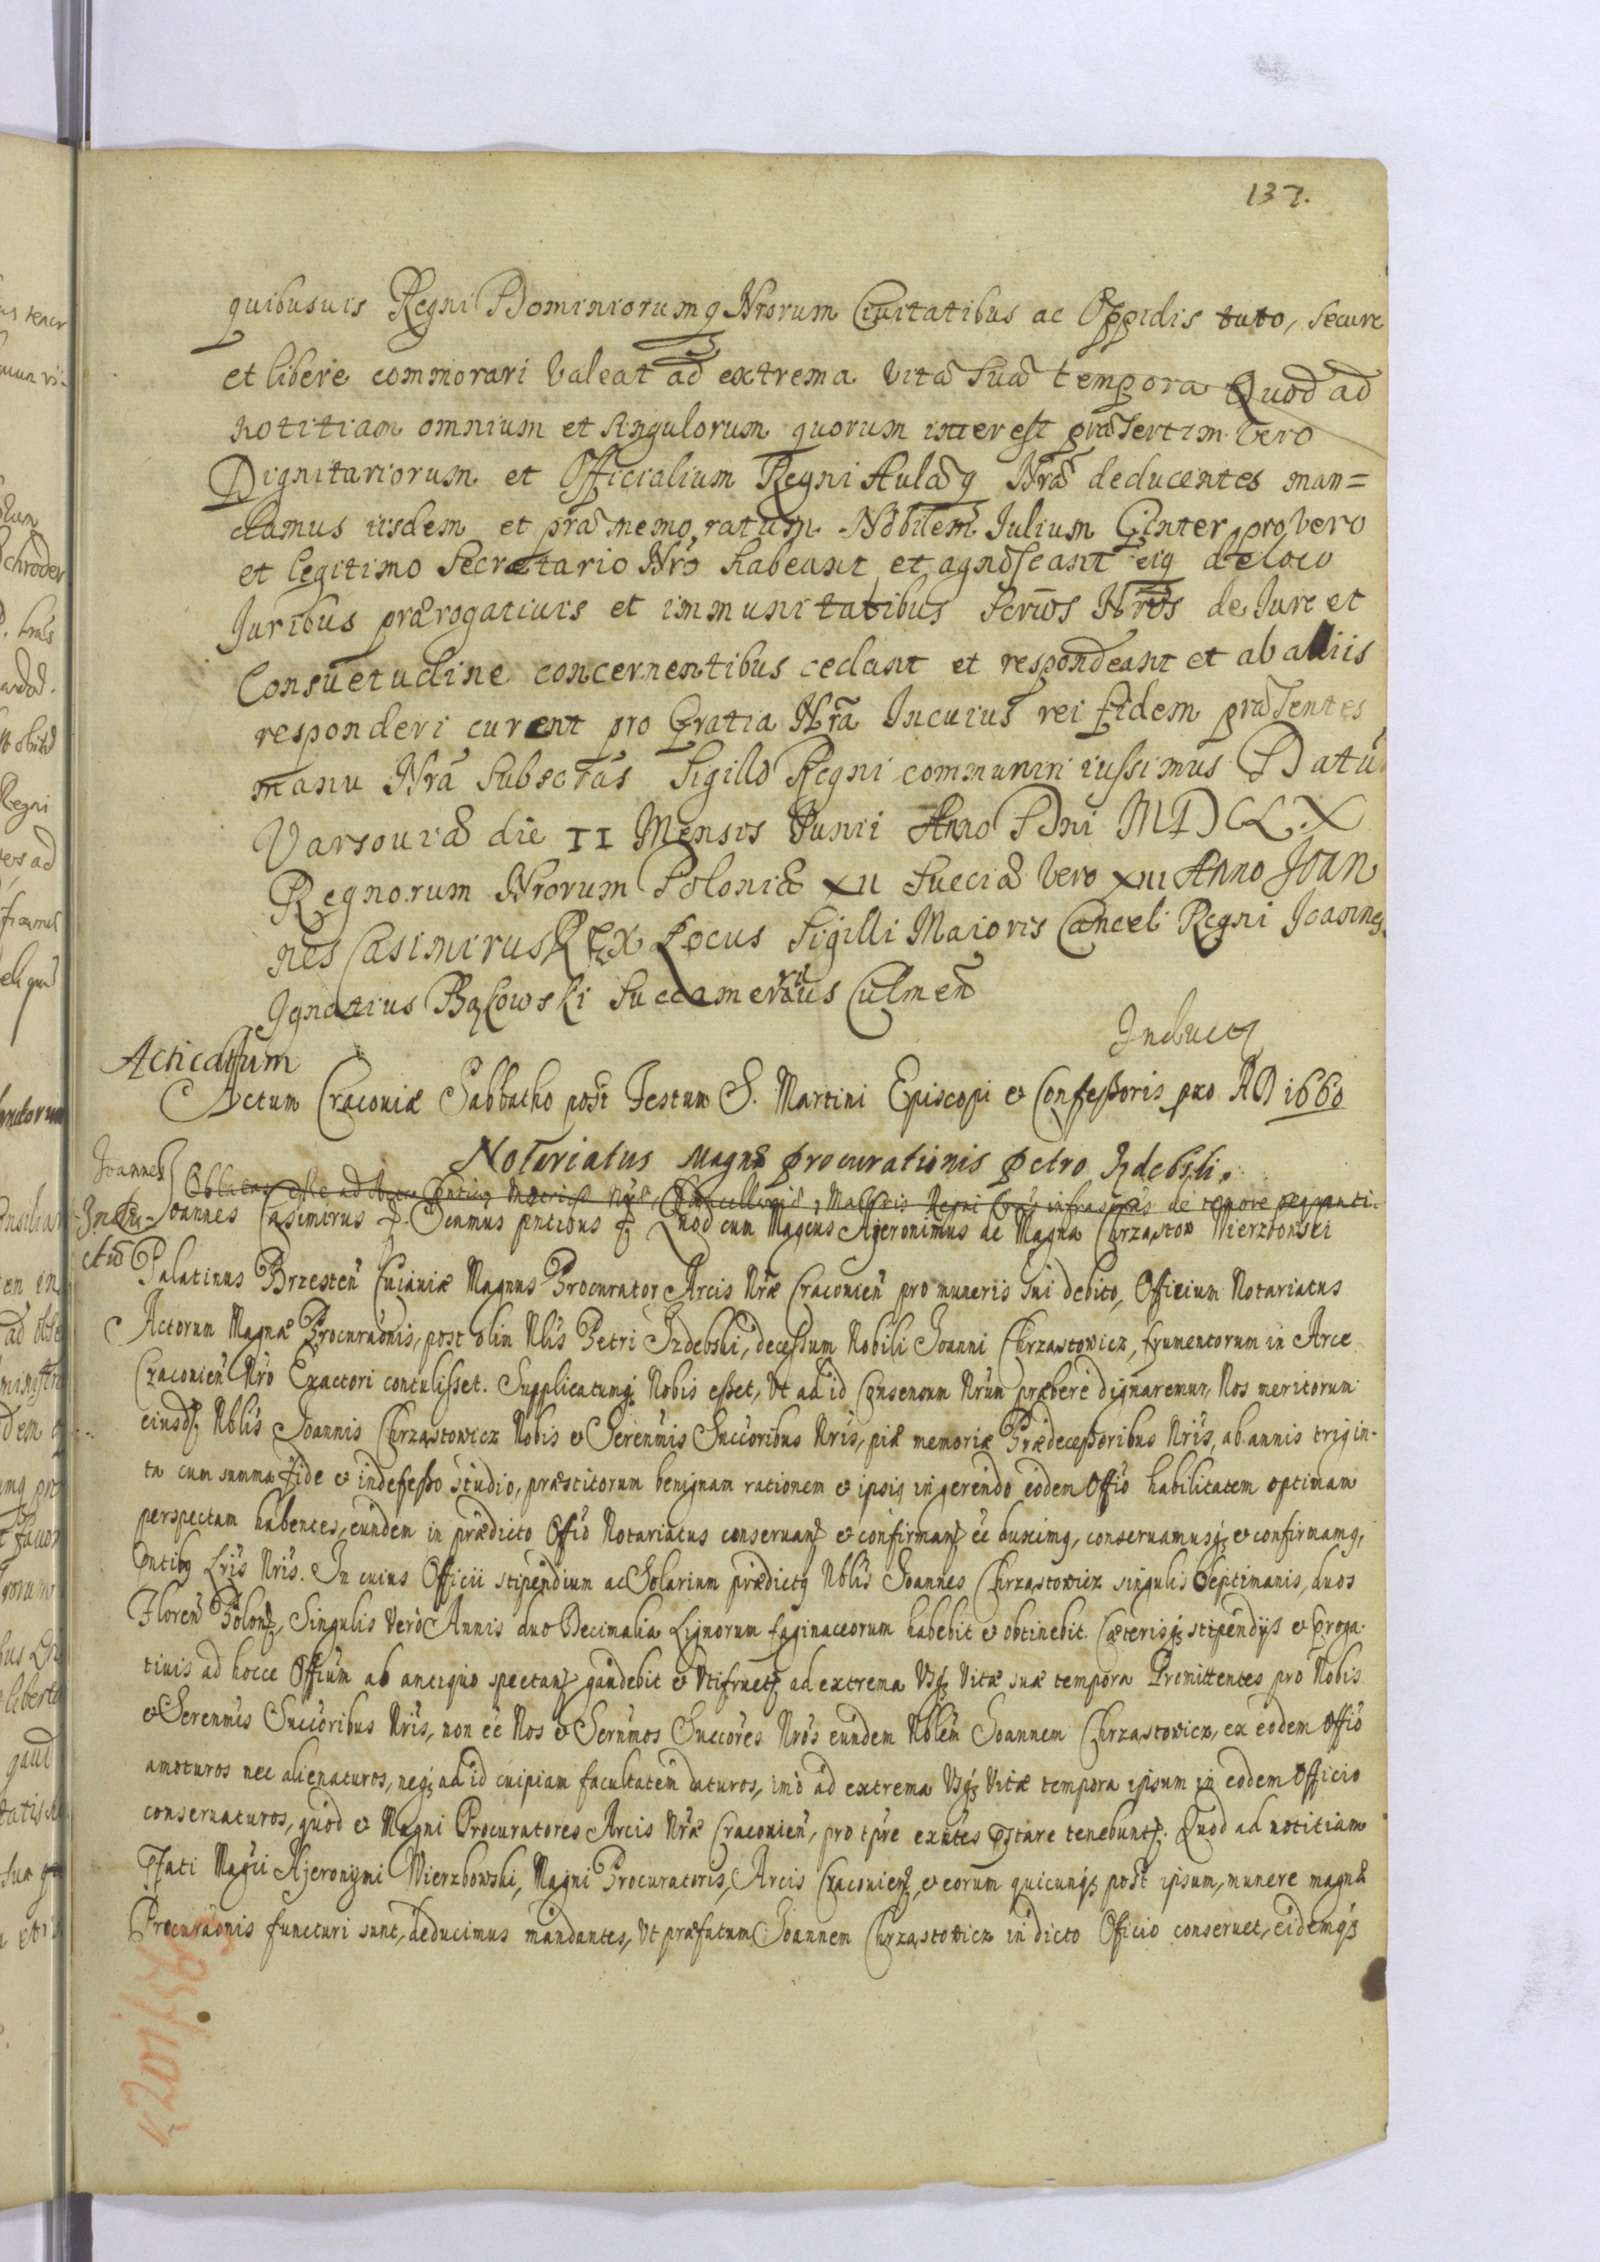 137.
quibusuis Regni Dominiorumq Nrorum Civitatibus ac Oppidis tuto, secure
et libere commorari valeat ad extrema vitæ suæ tempora Quod ad
notitiam omnium et singulorum quorum interest præsertim vero
Dignitariorum et Officialium Regni Aulæq Nræ deducentes man=
damus iisdem et præmemoratum Nobilem Iulium Ginter pro vero
et legitimo Secretario Nro habeant et agnoscant eiq de loco
Iuribus prærogativis et immunitatibus Servos Nros de Iure et
Consuetudine concernentibus cedant et respondeant et ab aliis
responderi curent pro Gratia Nra In cuius rei fidem præsentes
manu Nra subscras Sigillo Regni communiri iussimus Datū
Varsoviæ die II Mensis Iunii Anno Dni MDCLX
Regnorum Nrorum Poloniæ XII Sueciæ vero XIII Anno Joan
nes Casimirus Rex Locus Sigilli Maioris Cancel Regni Joannes
Ignatius Bąkowski Succamerarius Culmen
Inductq
Acticatum
Actum Cracoviæ Sabbatho post Festum S. Martini Episcopi & Confessoris pxo AD 1660
Notariatus Magnæ procurationis petro Izdebski.
Joannes
Joannes Casimirus &. Scimus pntibus & Quod cum Magcus Hjeronimus de Magna Chrząstow Wierzbowski
Palatinus Brzesten Cuiaviæ Magnus Procurator Arcis Nræ Cracovien pro muneris sui debito, Officium Notariatus
Actorum Magnæ Procuraonis, post olim Nblis Petri Izdebski, decessum Nobili Joanni Chrząstowicz, frumentorum in Arce
Cracovien Nro Exactori contulisset. Supplicatumq Nobis esset, Vt ad id Consensum Nrum præbere dignaremur, Nos meritorum
eiusd Nblis Joannis Chrząstowicz Nobis & Serenmis Succoribus Nris, piæ memoriæ Prædecessoribus Nris, ab annis trigin-
ta cum summa fide & indefesso studio, præstitorum benignam rationem & ipsiq in gerendo eodem Offio habilitatem optimam
perspectam habentes, eundem in prædicto Offio Notariatus conservan & confirman ee duximq, conservamusq & confirmamq,
pntibq Lris Nris. In cuius Officii stipendium ac Solarium prædictq Nblis Joannes Chrząstowicz singulis Septimanis, duos
Floren Polon, Singulis vero Annis duo Decimalia Lignorum faginaceorum habebit & obtinebit. Cæterisq stipendijs & proga-
tivis ad hocce Offium ab antiquo spectan gaudebit & Vtifruet ad extrema Vsq Vitæ suæ tempora Promittentes pro Nobis
& Serenmis Succoribus Nris, non ee Nos & Sernmos Succores Nros eundem Nblem Joannem Chrząstowicz, ex eodem Offio
amoturos nec alienaturos, neq ad id cuipiam facultatem daturos, imo ad extrema Vsq Vitæ tempora ipsum in eodem Officio
conservaturos, quod & Magni Procuratores Arcis Nræ Cracovien, pro tpre exntes pstare tenebunt. Quod ad notitiam
Pfati Magci Hjeronymi Wierzbowski, Magni Procuratoris, Arcis Cracovien, & eorum quicunq post ipsum, munere magnæ
Procuraonis functuri sunt, deducimus mandantes, Vt præfatum Joannem Chrząstowicz in dicto Officio conservet, eidemq